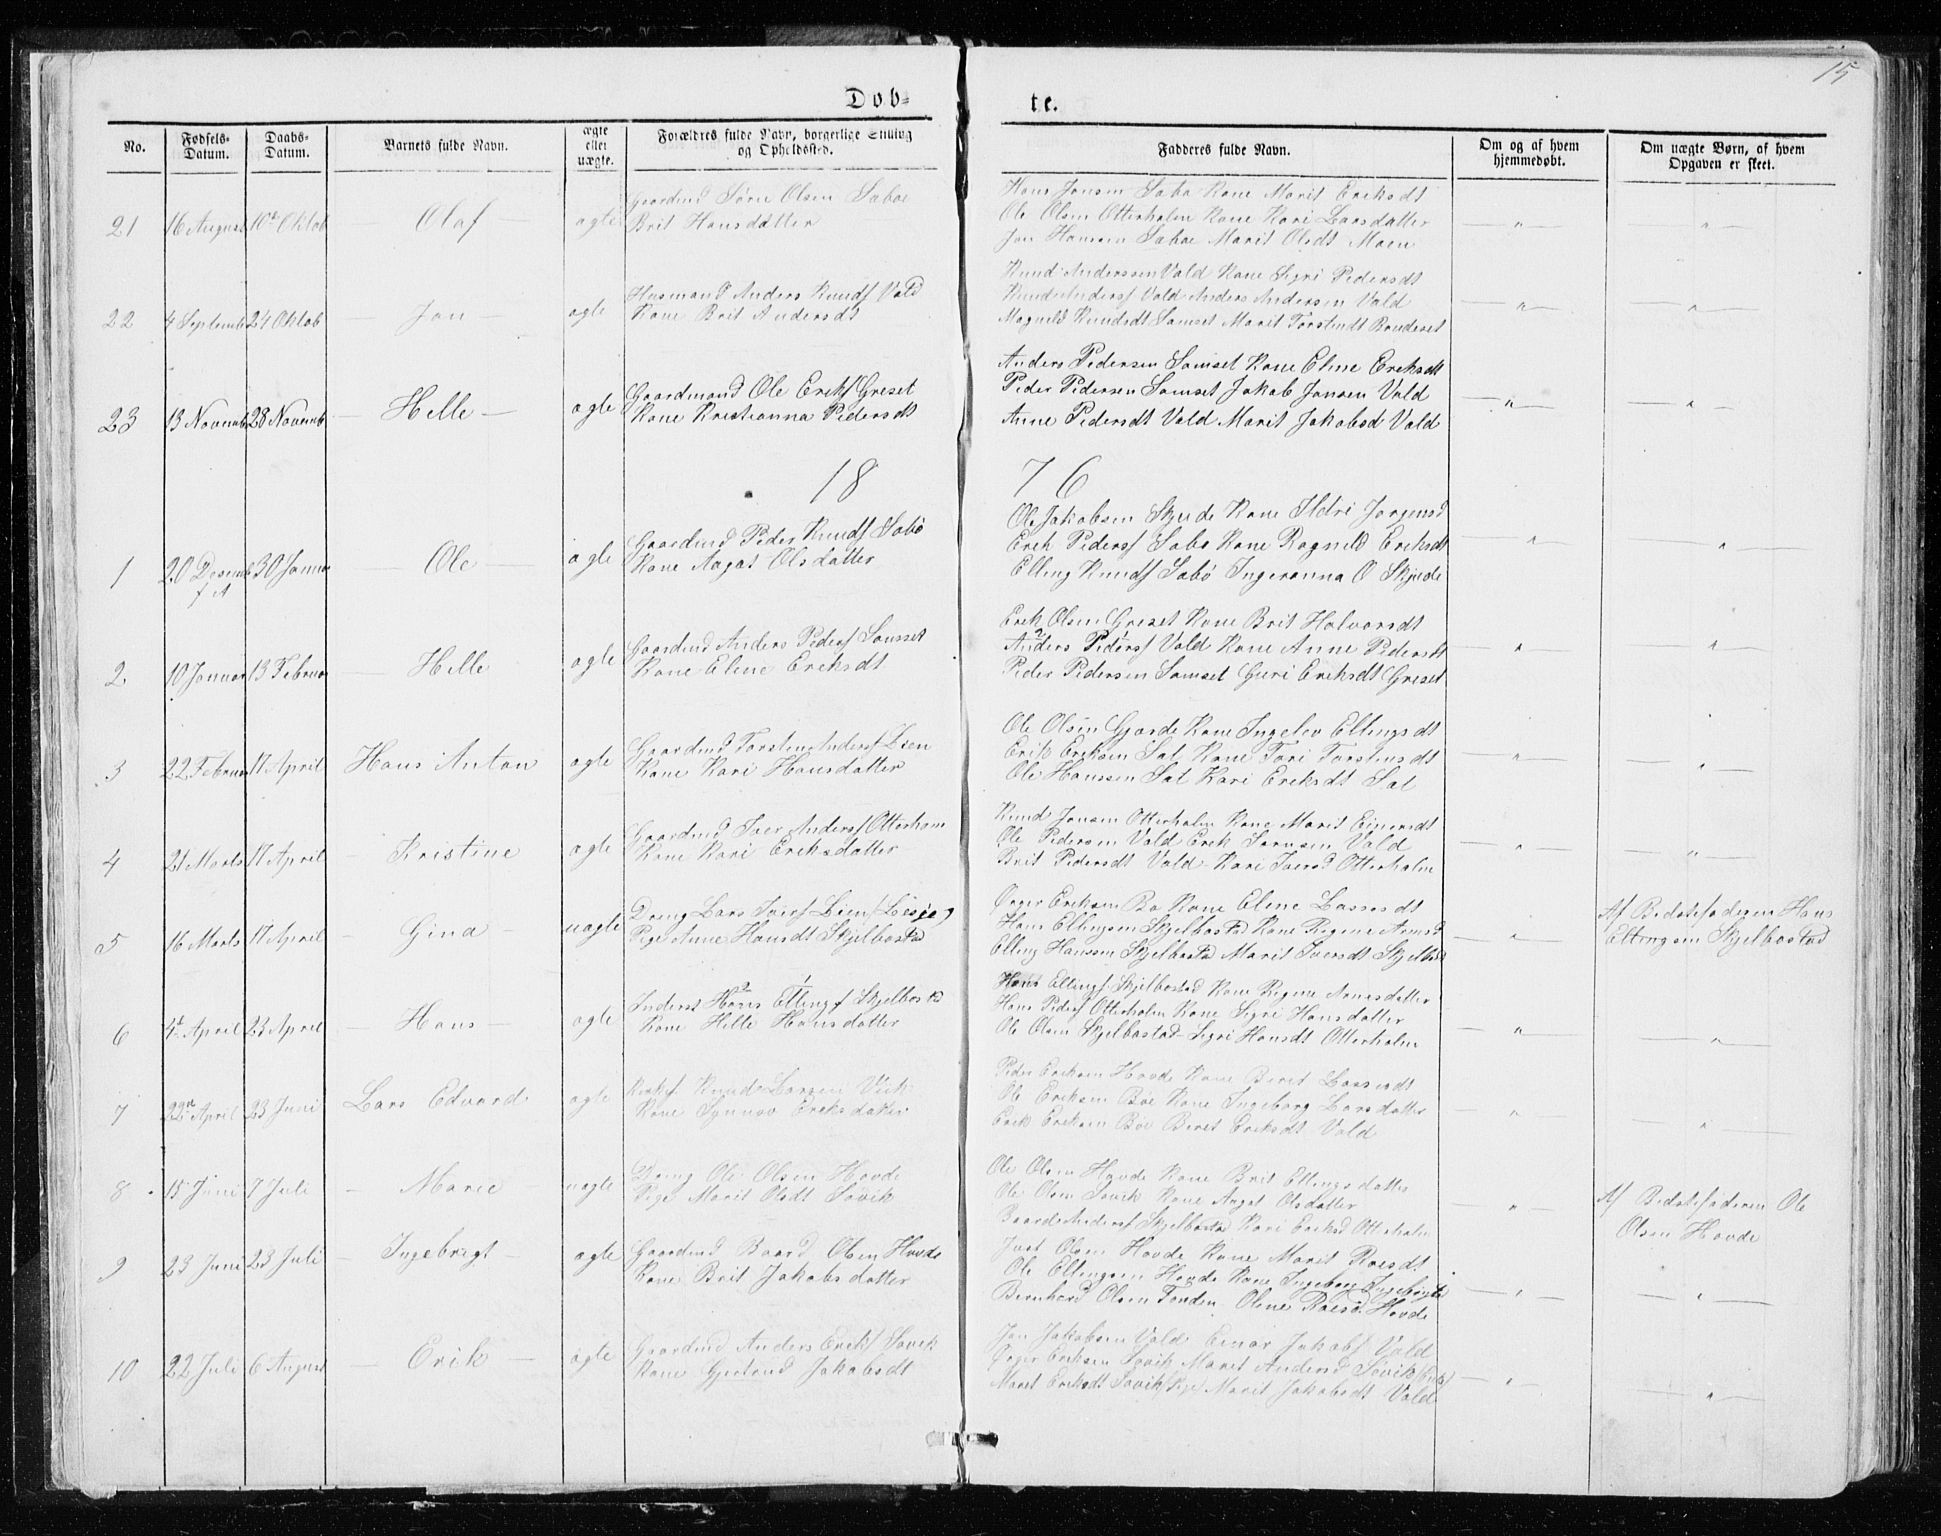 15
Døb=
te.
No.
Fødsels-Datum.
Daabs-Datum.
Barnets fulde Navn.
ægte eller uægte.
Forældres fulde Navn, borgerlige Stilling og Opholdssted.
Fadderes fulde Navn.
Om og af hvem hjemmedøbt.
Om uægte Børn, af hvem Opgaven er skeet.
21 16 August 10de Oktob — Olaf — ægte
Gaardmd Sørn Olsen Sæbøe
Brit Hansdatter
Hans Jonsen Sæbø Kone Marit Eriksdt
Ole Olsen Otterholm Kone Kari Larsdatter
Jon Hansen Sæbøe Marit Olsdt Moen
22 4 Septemb 24 Oktob — Jon — ægte
Husmand Anders Knuds Vold
Kone Brit Andersdt
Knud Anderssen Vold Kone Sigri Pedersdt
Knud Anderss Vold Anders Andersen Vold
Magnild Knudsdt Samset Marit Torstendt Bruaset
23 13 Novemb 28 Novemb — Helle — ægte
Gaardmand Ole Eriks Greset
Kone Kristianna Pedersdt
Anders Pedersen Samset Kone Eline Eriksdt
Peder Pedersen Samset Jakob Jonsen Vold
Anne Pedersdt Vold Marit Jakobsd Vold
1876
1 20 Desemb f A 30 Januar — Ole — ægte
Gaardmd Peder Knuds Sæbø
Kone Aagat Olsdatter
Ole Jakobsen Skjede Kone Ildri Jørgensd
Erik Peders Sæbø Kone Ragnild Eriksdt
Elling Knuds Sæbø Ingeranna O Skjede
2 10 Januar 13 Februar — Helle ægte
Gaardmd Anders Peders Samset
Kone Elene Eriksdt
Erik Olsen Greset Kone Brit Halvorsdt
Anders Peders Vold Kone Anne Pedersdt
Peder Pedersen Samset Guri Eriksdt Greset
3 22 Februar 17 April Hans Anton ægte
Gaardmd Torsten Anders Lien
Kone Kari Hansdatter
Ole Olsen Gjerde Kone Ingelev Ellingsdt
Erik Eriksen Sæt Kone Tori Torstensdt
Ole Hanssen Sæt Kari Eriksdt Sæt
4 21 Marts 17 April — Kristine ægte
Gaardmd Iver Anders Otterholm
Kone Kari Eriksdatter
Knud Jonsen Otterholm Kone Marit Einersdt
Ole Pedersen Vold Erik Sørnsen Vold
Brit Pedersdt Vold Kari Iversd Otterholm
5 16 Marts 17 April — Gina — uægte
Dreng Lars Ivers Lien (Lesje)
Pige Anne Hansdt Skjelbostad
Ørger Eriksen Bø Kone Elene Lassesdt
Hans Ellingsen Skjelbostad Kone Regine Arnesd
Elling Hanssen Skjelbostad Marit Iversdt Skjelbos
Af Bedstefaderen Hans
Ellingsen Skjelbostad
6 4de April 23 April — Hans — ægte
Inderst Hans Ellings Skjelbostd
Kone Helle Hansdatter
Hans Ellings Skjelbostad Kone Regine Arnesdatter
Hans Peders Otterholm Kone Sigri Hansdatter
Ole Olsen Skjelbostad Sigri Hansdt Otterholm
7 22de April 23 Juni Lars Edvard ægte
Knud Larsen Viik
Kone Synnøv Eriksdatter
Peder Eriksen Hovde Kone Berit Lassesdt
Ole Eriksen Bøe Kone Ingeborg Larsdatter
Erik Eriksen Bøe Beret Eriksdt Vold
8 15 Juni 7 Juli — Marie uægte
Dreng Ole Olsen Hovde
Pige Marit Olsdt Søvik
Ole Olsen Hovde Kone Brit Ellingsdatter
Ole Olsen Søvik Kone Aagot Olsdatter
Baard Anders Skjelbostad Kari Eriksd Otterholm
Af Bedstefaderen Ole
Olsen Hovde
9 23 Juni 23 Juli — Ingebregt — ægte
Gaardmd Baard Olsen Hovde
Kone Brit Jakobsdatter
Just Olsen Hovde Kone Marit Roesdt
Ole Ellingsen Hovde Kone Ingeborg Ingebrigtsd
Bernhard Olsen Tonden Olene Roesd Hovde
10 22 Juli 6 August — Erik — ægte
Gaardmd Anders Eriks Søvik
Kone Gjertrud Jakobsdt
Jon Jakobsen Vold Einar Jakobs Vold
Ørger Eriksen Søvik Marit Andersd Søvik
Marit Eriksdt Søvik (Pige) Marit Jakobsdt Vold